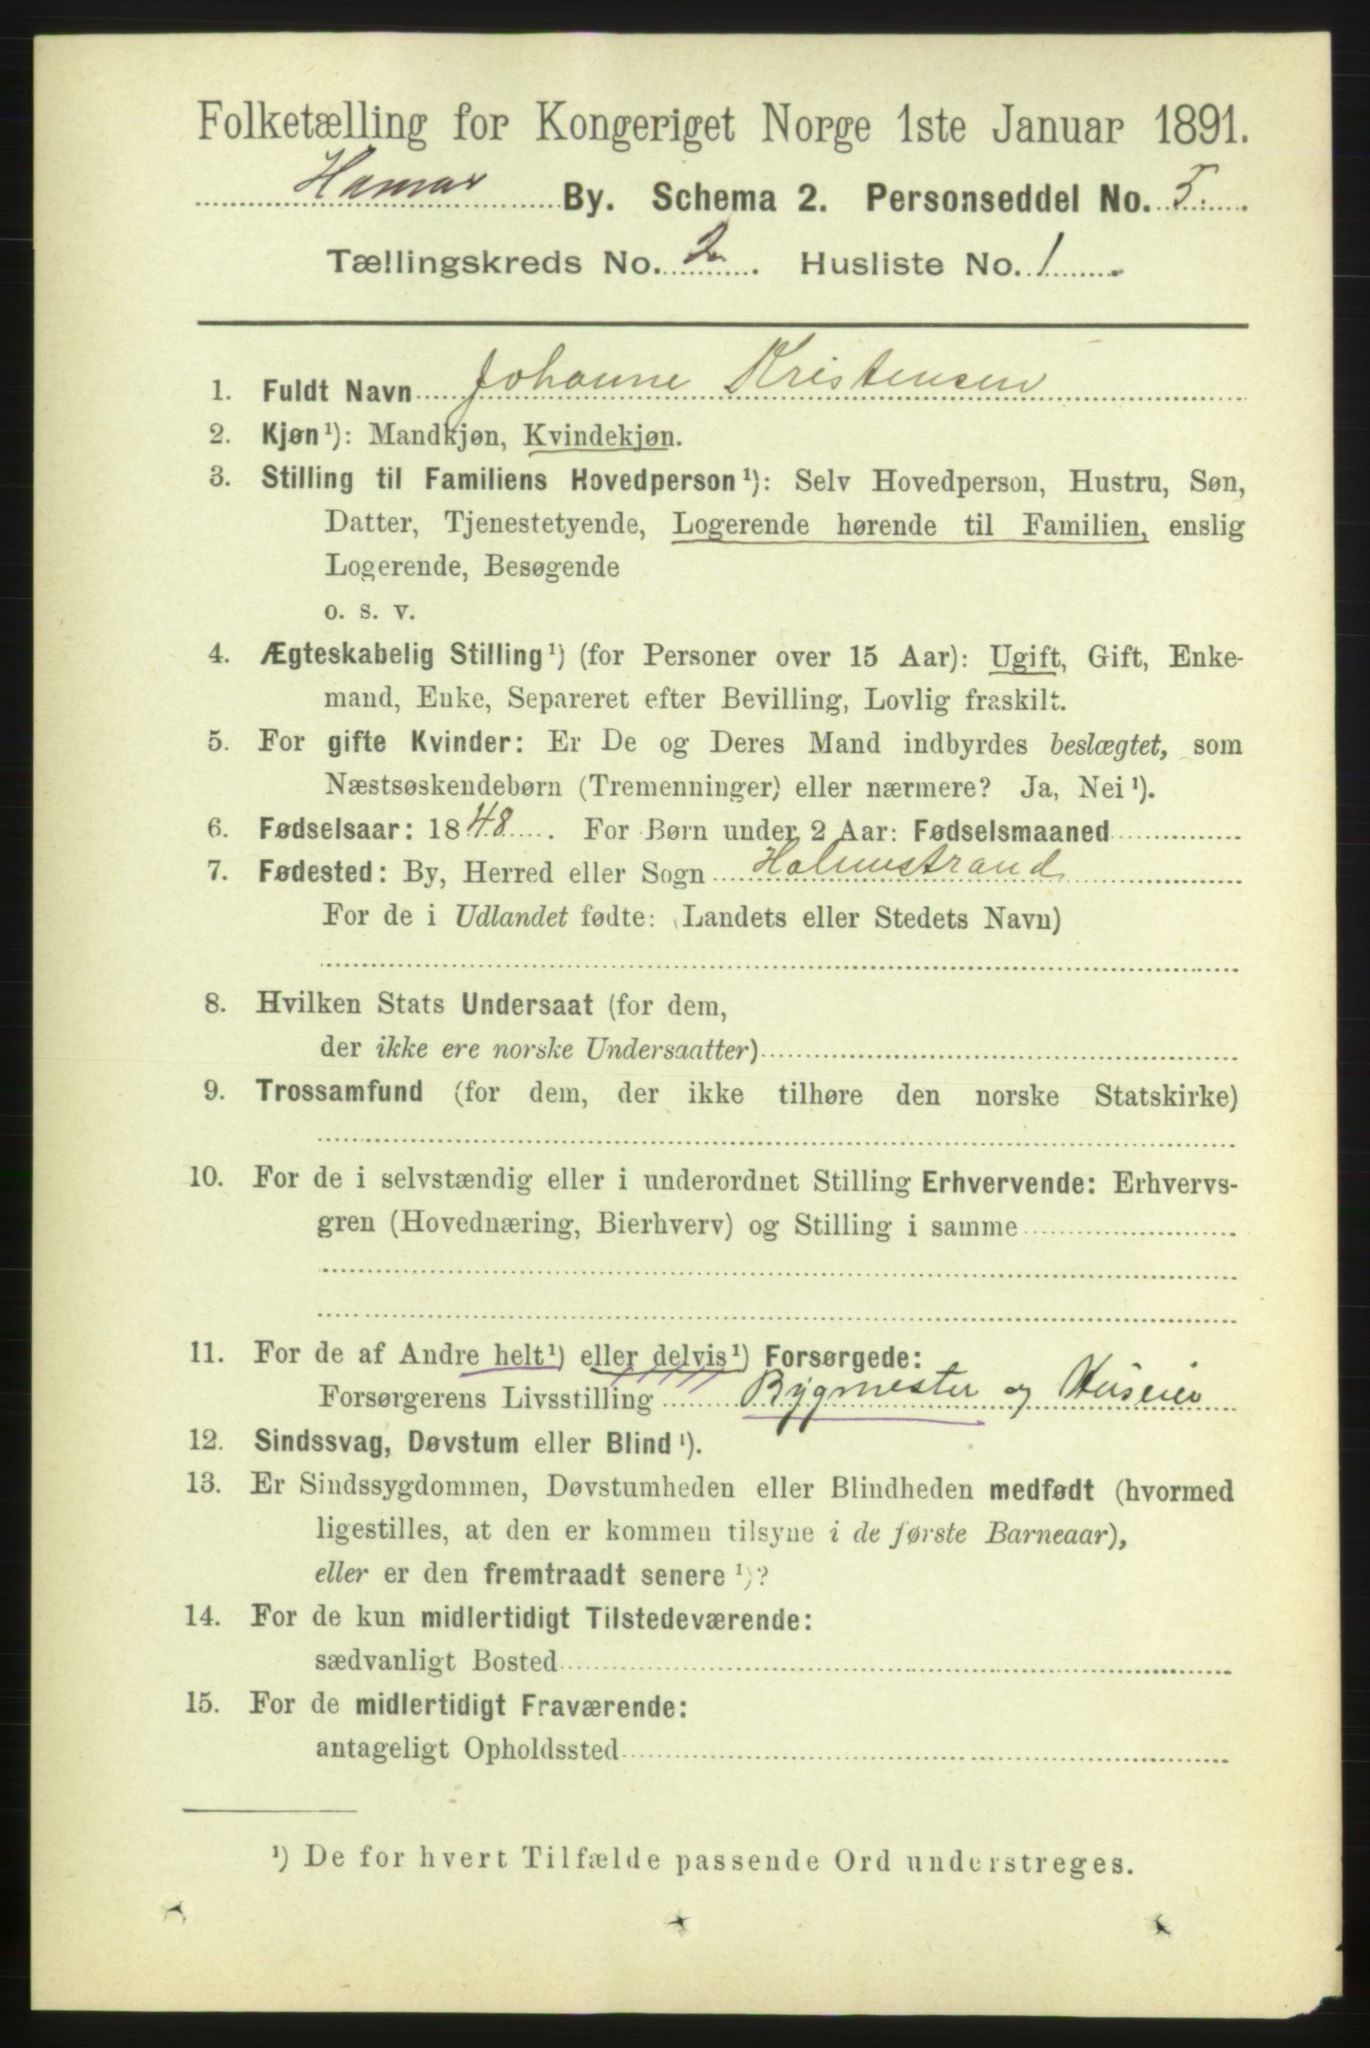 Folketælling for Kongeriget Norge 1ste Januar 1891.
Hamar By. Schema 2. Personseddel No. 5.
Tællingskreds No. 2. Husliste No. 1.
1. Fuldt Navn Johanne Kristensen
2. Kjøn¹): Mandkjøn, Kvindekjøn.
3. Stilling til Familiens Hovedperson¹): Selv Hovedperson, Hustru, Søn,
Datter, Tjenestetyende, Logerende hørende til Familien, enslig
Logerende, Besøgende
o. s. v.
4. Ægteskabelig Stilling¹) (for Personer over 15 Aar): Ugift, Gift, Enke-
mand, Enke, Separeret efter Bevilling, Lovlig fraskilt.
5. For gifte Kvinder: Er De og Deres Mand indbyrdes beslægtet, som
Næstsøskendebørn (Tremenninger) eller nærmere? Ja, Nei¹).
6. Fødselsaar: 1848. For Børn under 2 Aar: Fødselsmaaned
7. Fødested: By, Herred eller Sogn Holmestrand
For de i Udlandet fødte: (Landets eller Stedets Navn)
8. Hvilken Stats Undersaat (for dem,
der ikke ere norske Undersaatter)
9. Trossamfund (for dem, der ikke tilhøre den norske Statskirke)
10. For de i selvstændig eller i underordnet Stilling Erhvervende: Erhvervs-
gren (Hovednæring, Bierhverv) og Stilling i samme
11. For de af Andre helt¹) eller delvis¹) Forsørgede:
Forsørgerens Livsstilling Bygmester og Huseier
12. Sindssvag, Døvstum eller Blind¹).
13. Er Sindssygdommen, Døvstumheden eller Blindheden medfødt (hvormed
ligestilles, at den er kommen tilsyne i de første Barneaar),
eller er den fremtraadt senere¹)?
14. For de kun midlertidigt Tilstedeværende:
sædvanligt Bosted
15. For de midlertidigt Fraværende:
antageligt Opholdssted
¹) De for hvert Tilfælde passende Ord understreges.